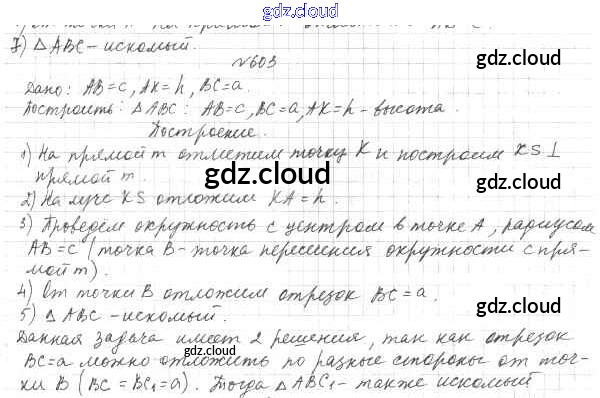 gdz.cloud
7) △ABC – искомый.
№603
Дано: AB=c, AK=h, BC=a.
gdz.cloud
Построить: △ABC: AB=c, BC=a, AK=h – высота.
Построение.
1) На прямой m отметим точку K и построим KS⊥
прямой m.
gdz.cloud
2) На луче KS отложим KA=h.
3) Проведём окружность с центром в точке A, радиусом
AB=c (точка B – точка пересечения окружности с пря-
мой m).
gdz.cloud
4) От точки B отложим отрезок BC=a.
gdz.cloud
5) △ABC – искомый.
Данная задача имеет 2 решения, так как отрезок
gdz.cloud
BC=a можно отложить по разные стороны от точ-
ки B (BC=BC₁=a). Тогда △ABC₁ – также искомый
gdz.cloud